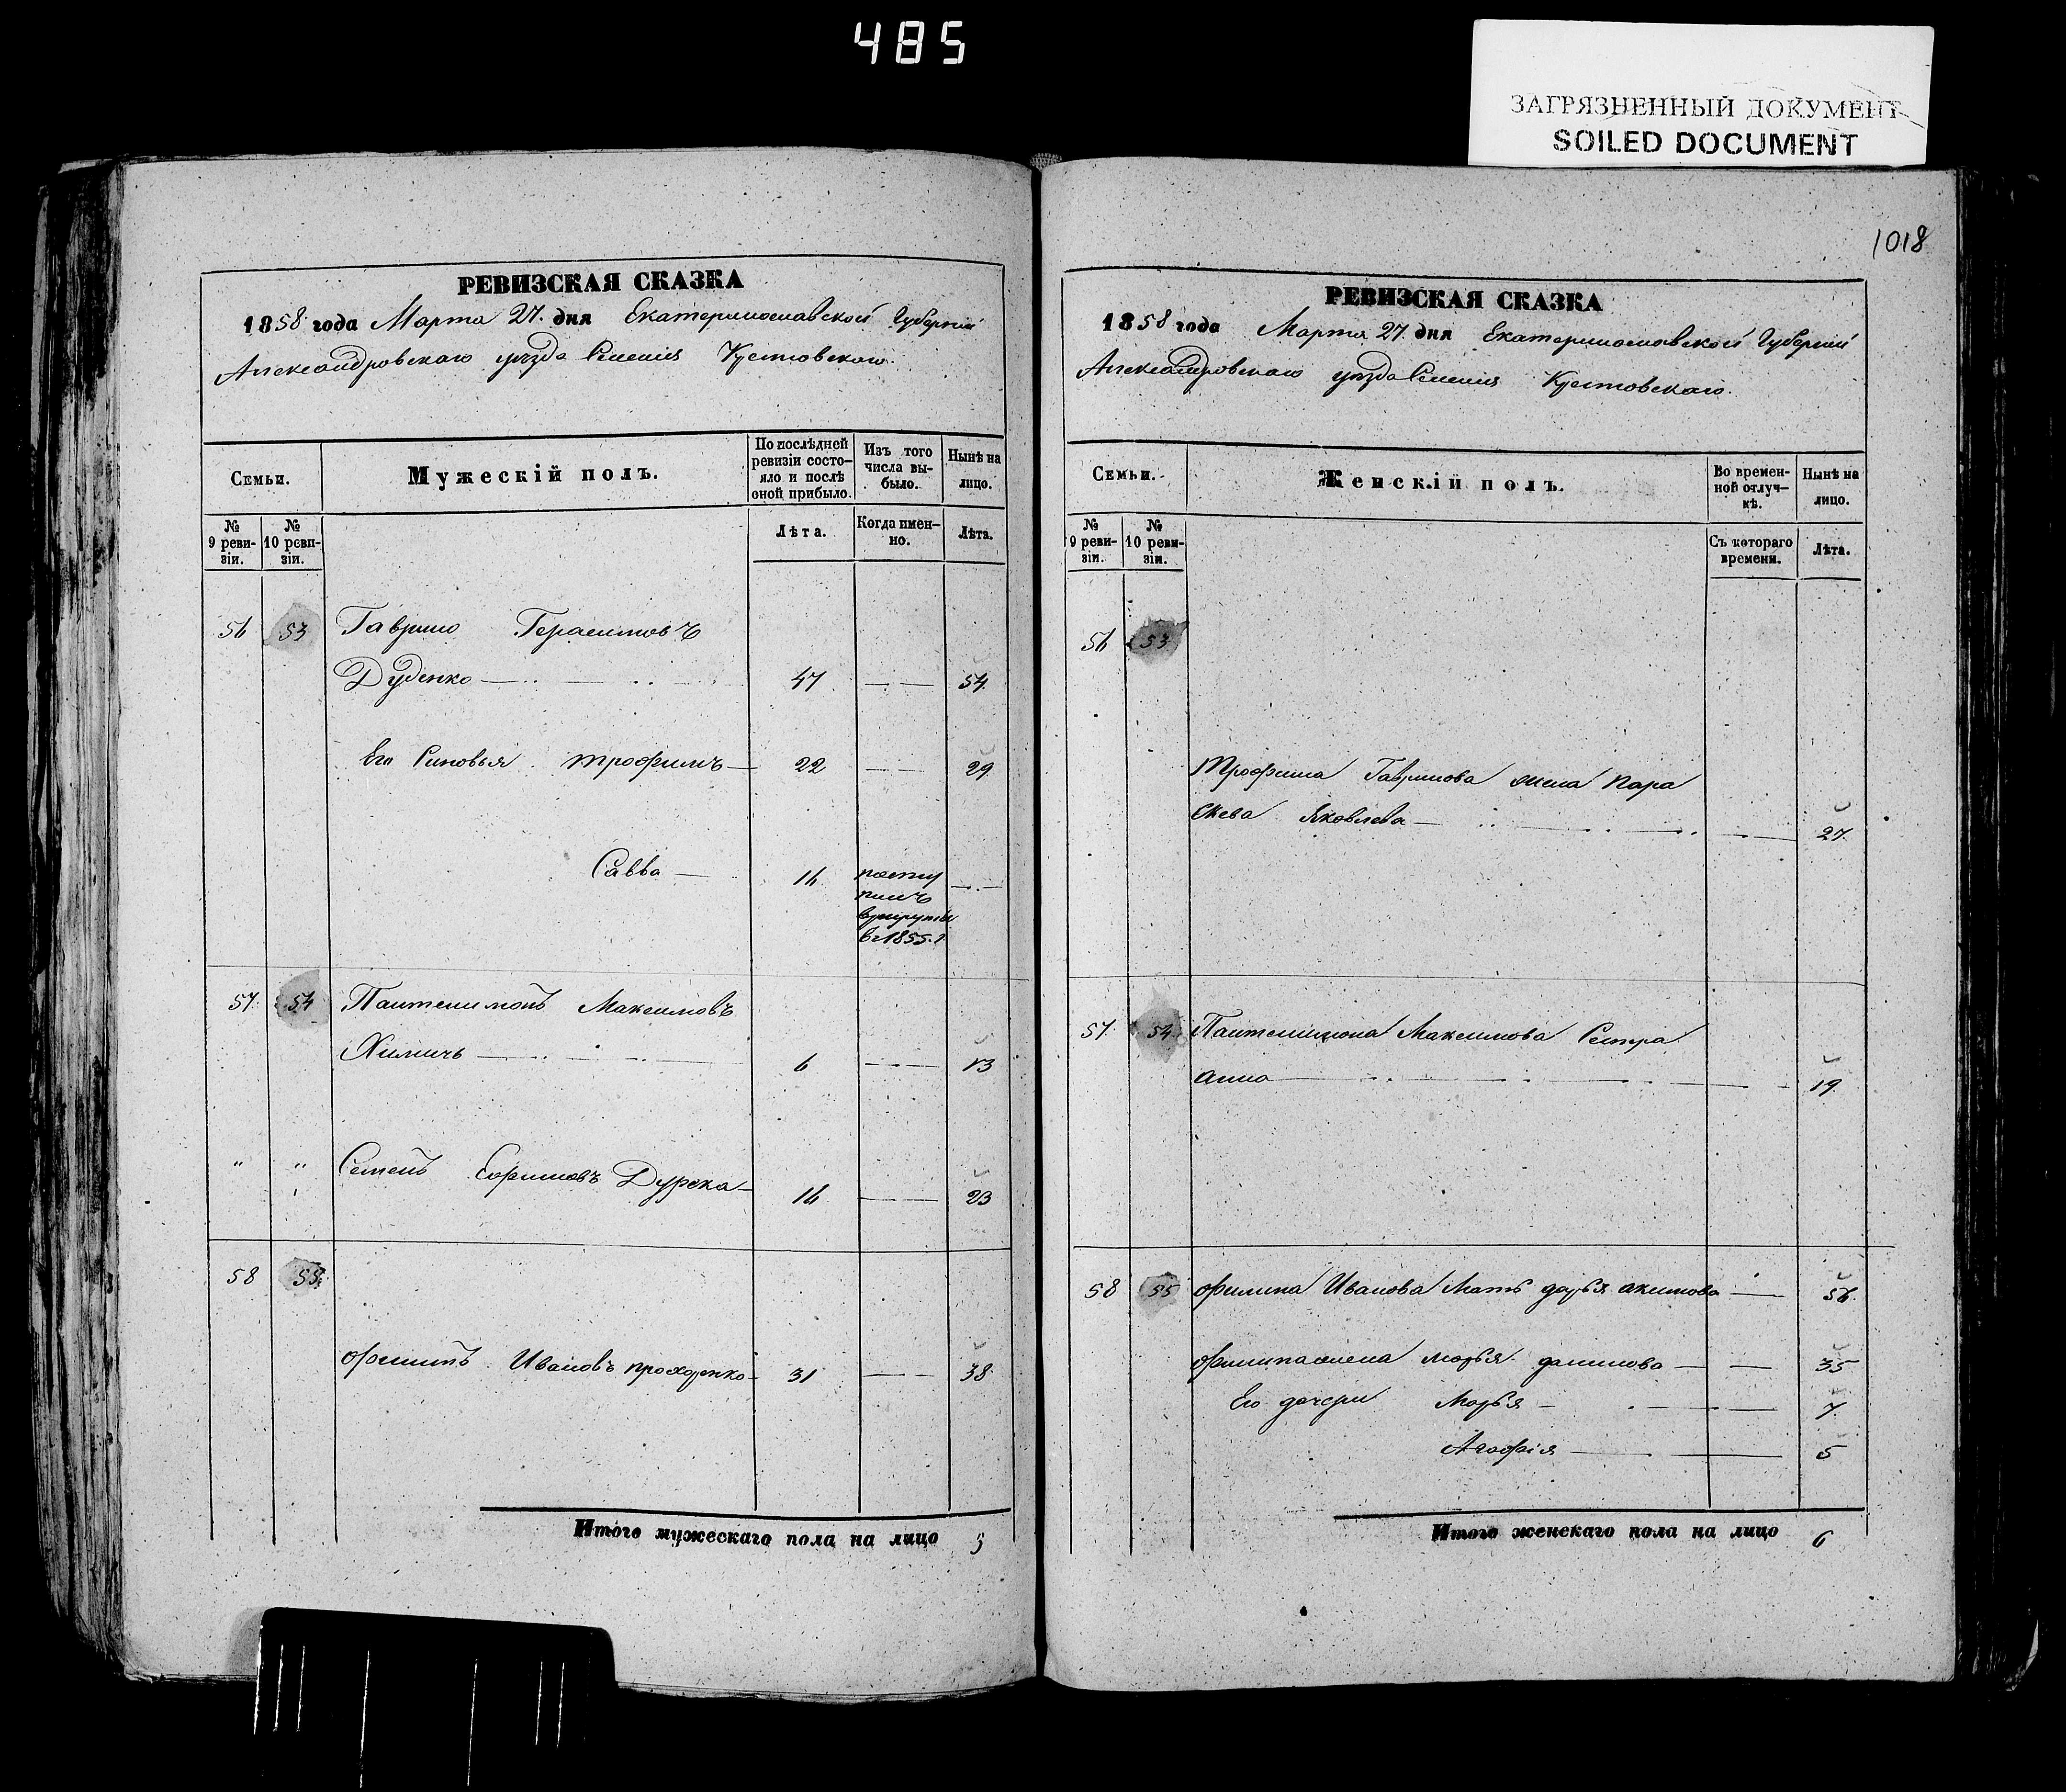 485
ЗАГРЯЗНЕННЫЙ ДОКУМЕНТ
SOILED DOCUMENT
РЕВИЗСКАЯ СКАЗКА
1858 года Марта 27. дня Екатеринославской Губернии
Александровскаго уезда Селения Кустовскаго.
Семьи.
Мужескій полъ.
По послѣдней ревизіи состо-
яло и послѣ
оной прибыло.
Изъ того
числа вы-
было.
Нынѣ на
лицо.
№
9 реви-
зіи.
№
10 реви-
зіи.
Лѣта.
Когда имен-
но.
Лѣта.
56 53 Гаврило Герасимовъ
Дуденко 47 54.
Его Синовья Трофимъ 22 29
Савва 16 посту
пилъ
в рекруты
в 1855. г
57. 54 Пантелимонъ Максимовъ
Химичь 6 13
" " Семенъ Ефимовъ Дурека 16 23
58 55.
Филипъ Ивановъ Прохоренко 31 38
Итого мужескаго пола на лицо 5
1018
РЕВИЗСКАЯ СКАЗКА
1858 года Марта 27. дня Екатеринославской Губернии
Александровскаго уезда Селения Кустовскаго.
Семьи.
Женскій полъ.
Во времен-
ной отлуч-
кѣ.
Нынѣ на
лицо.
№
9 реви-
зіи.
№
10 реви-
зіи.
Съ котораго
времени.
Лѣта.
56 53
Трофима Гаврилова жена Пара
скева Яковлева 27.
57. 54. Пантелимона Максимова Сестра
Анна 19.
58 55 Филипа Иванова Мать дарья акимова 56.
Филипа жена марья данилова 35
Его дочери Марья 7.
Агафія 5
Итого женскаго пола на лицо 6